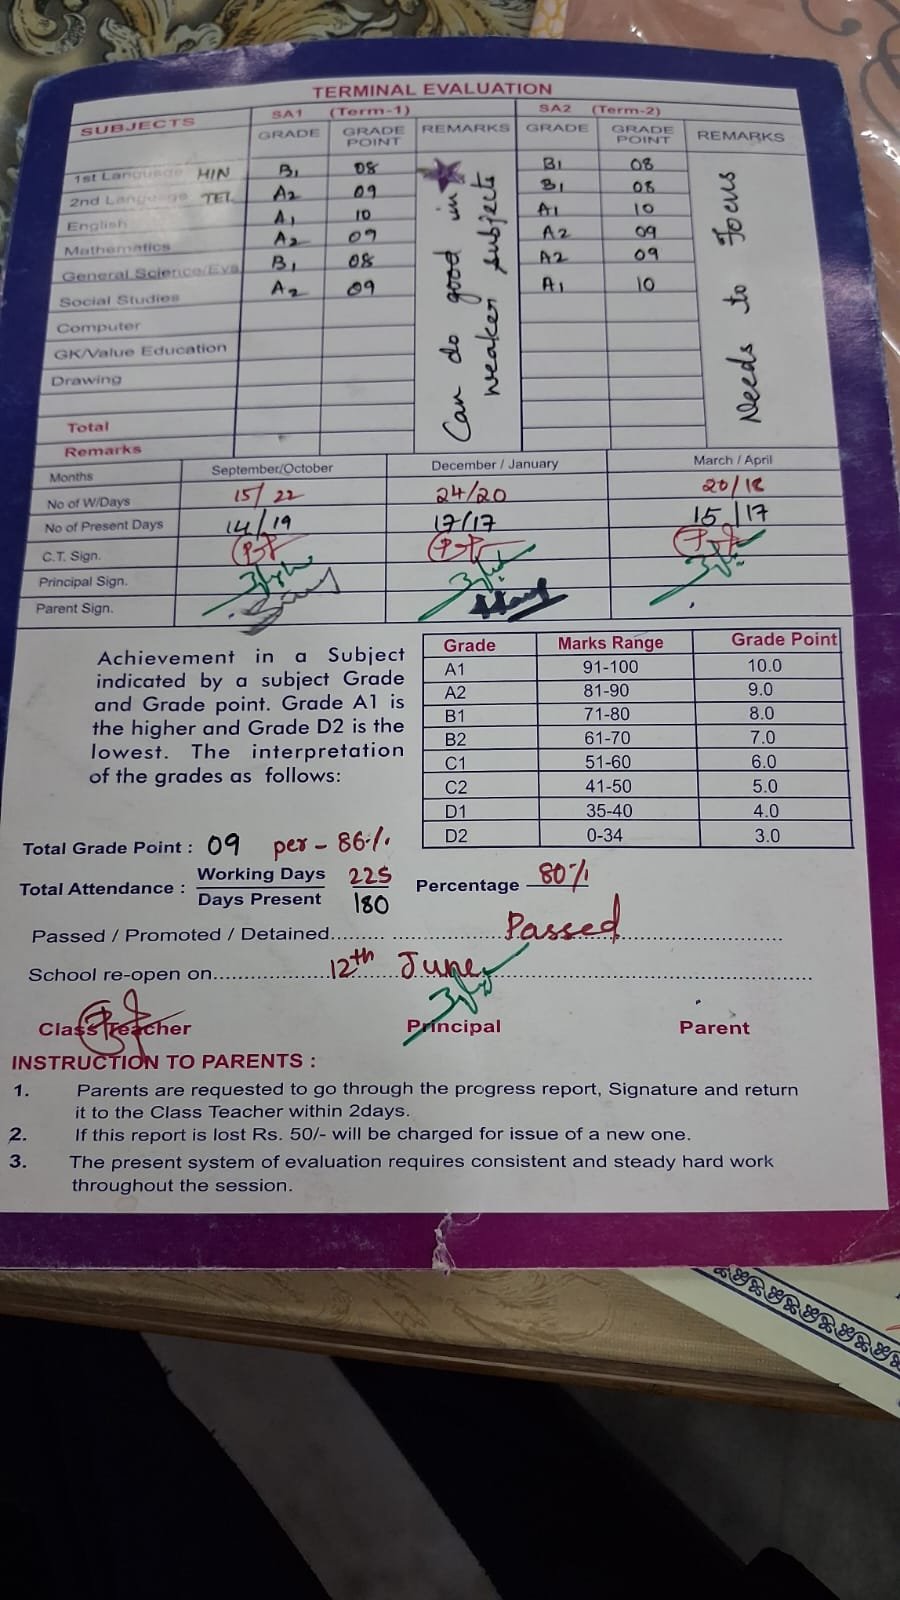 TERMINAL EVALUATION
SUBJECTS SA1 (Term-1) SA2 (Term-2)
GRADE GRADE POINT REMARKS GRADE GRADE POINT REMARKS
1st Language HIN B1 08 B1 08
2nd Language TEL A2 09 B1 08
English A1 10 A1 10
Mathematics A2 09 A2 09
General Science/Evs B1 08 A2 09
Social Studies A2 09 A1 10
Computer
GK/Value Education
Drawing
Total
Can do good in weaker subjects
Needs to Focus
Remarks
Months September/October December / January March / April
No of W/Days 15/ 22 24/20 20/18
No of Present Days 14/19 17/17 15/17
C.T. Sign.
Principal Sign.
Parent Sign.
Achievement in a Subject
indicated by a subject Grade
and Grade point. Grade A1 is
the higher and Grade D2 is the
lowest. The interpretation
of the grades as follows:
Grade Marks Range Grade Point
A1 91-100 10.0
A2 81-90 9.0
B1 71-80 8.0
B2 61-70 7.0
C1 51-60 6.0
C2 41-50 5.0
D1 35-40 4.0
D2 0-34 3.0
Total Grade Point : 09 per - 86%
Total Attendance : Working Days 225 Percentage 80%
Days Present 180
Passed / Promoted / Detained........ Passed
School re-open on........ 12th June
Class Teacher Principal Parent
INSTRUCTION TO PARENTS :
1. Parents are requested to go through the progress report, Signature and return
it to the Class Teacher within 2days.
2. If this report is lost Rs. 50/- will be charged for issue of a new one.
3. The present system of evaluation requires consistent and steady hard work
throughout the session.